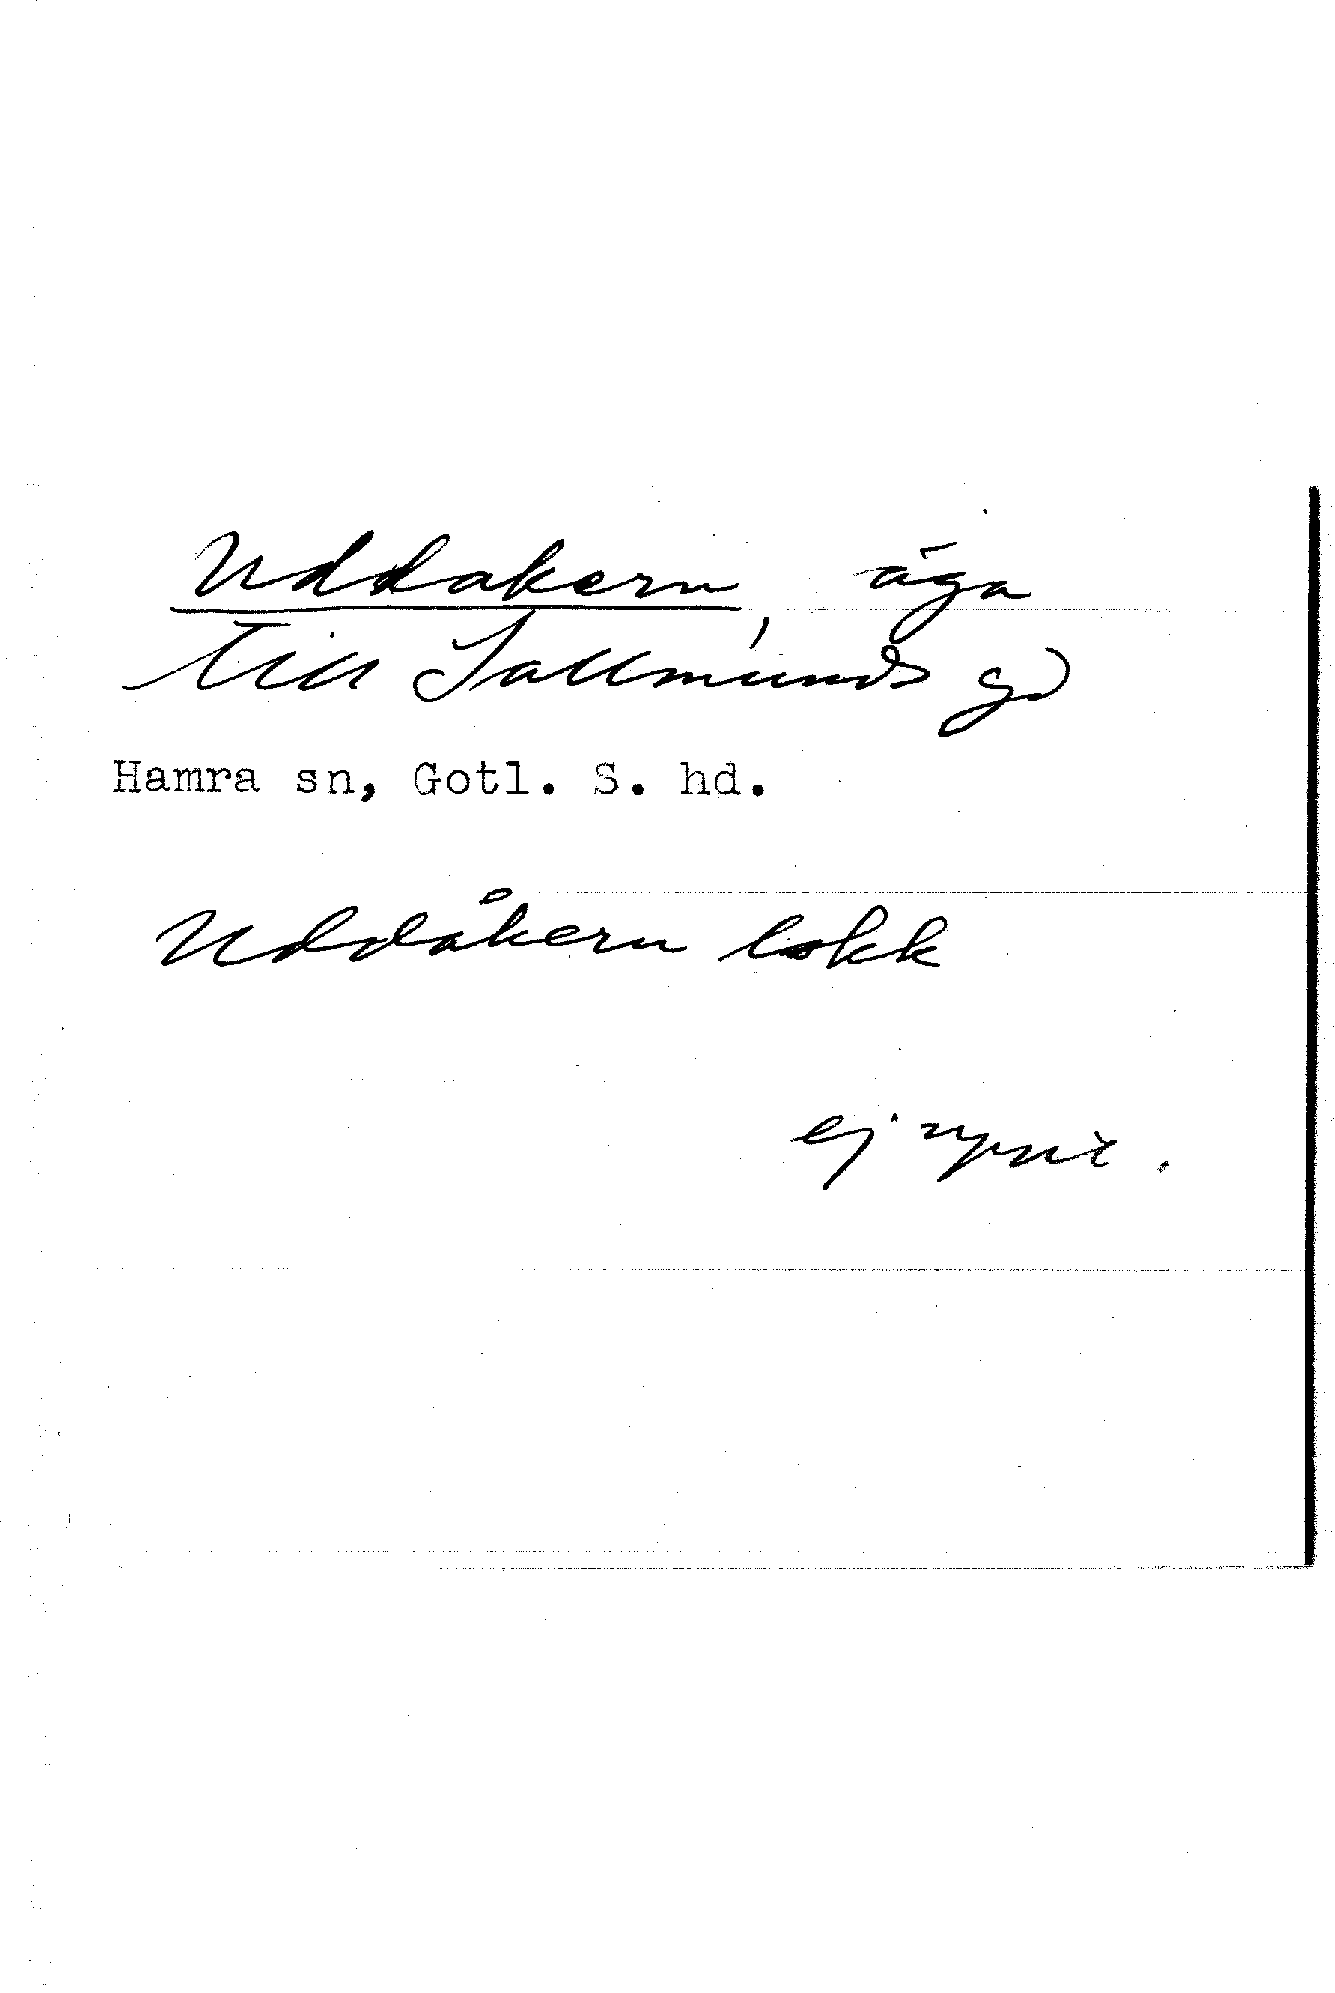 Uddakern, äga
till Sallmunds gd
Hamra sn, Gotl. S. hd.
Uddåkern lokk
ej